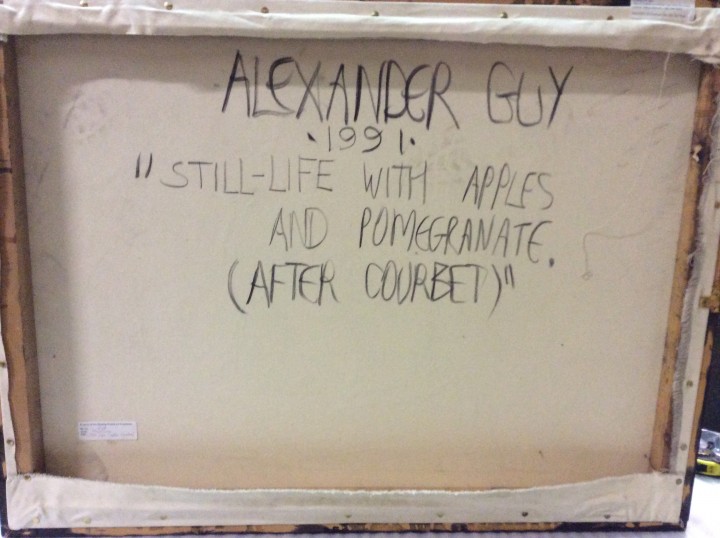 ALEXANDER GUY
·1991·
"STILL-LIFE WITH APPLES
AND POMEGRANATE.
(AFTER COURBET)"